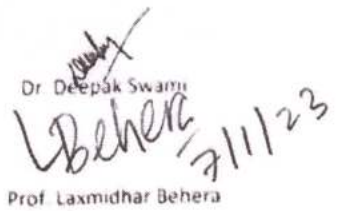 Dr. Deepak Swami
LBehera
7/1/23
Prof. Laxmidhar Behera